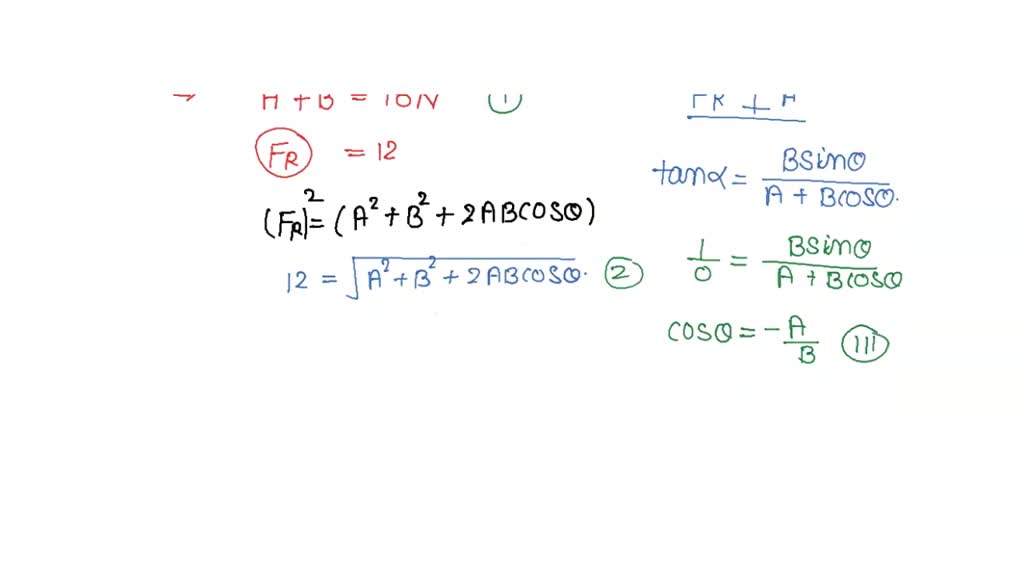 → A + B = ①
FR = 12
(FR)² = (A² + B² + 2ABCOSθ)
12 = √A² + B² + 2ABCOSθ. ②
FR ⊥ A
tanα = BSinθ / A + BCOSθ.
1/0 = BSinθ / A + BCOSθ
COSθ = -A/B III